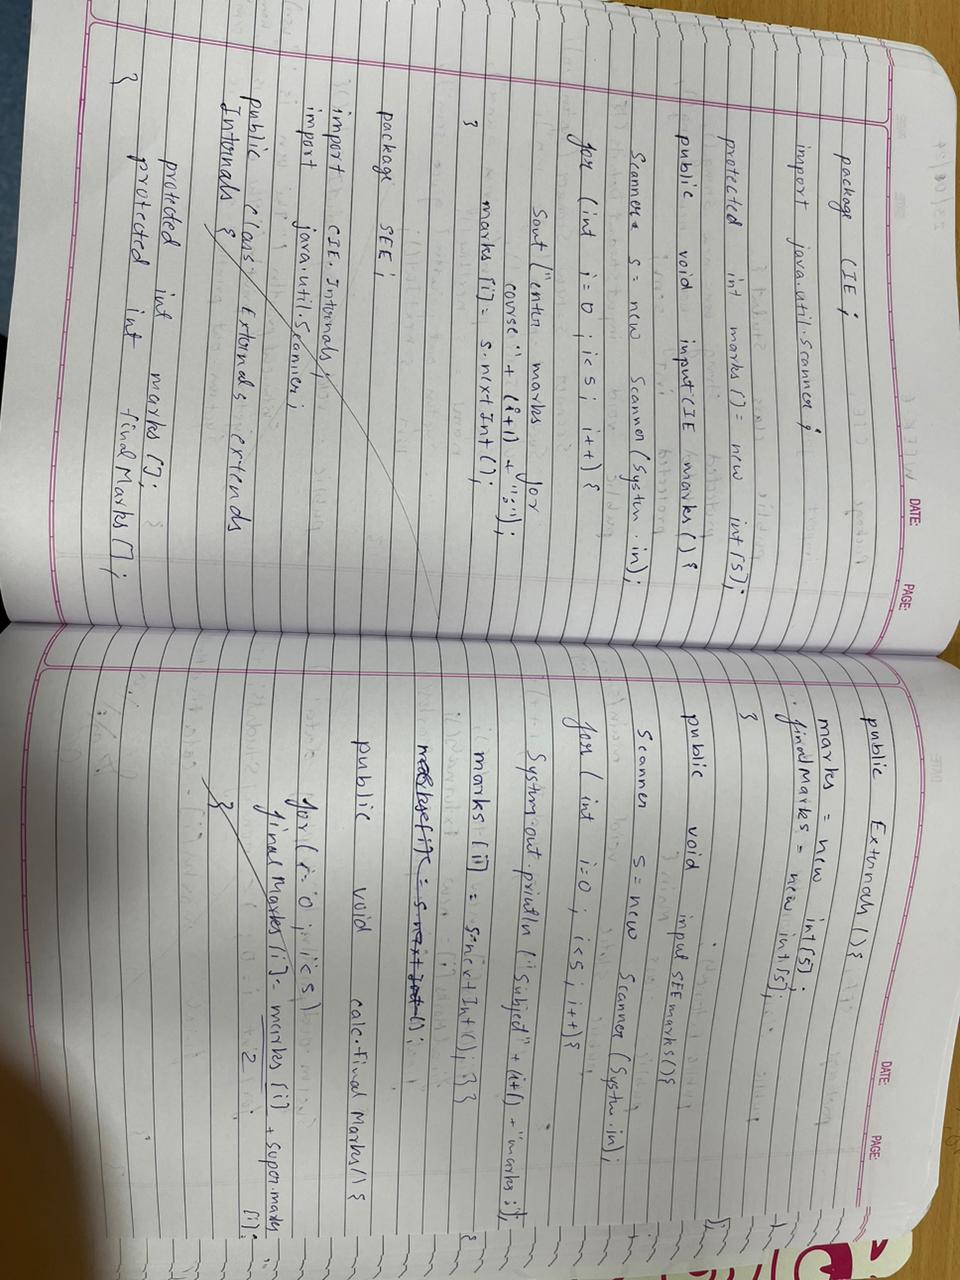 DATE: PAGE:
package CIE;
import java.util.Scanner;
protected int marks[] = new int[5];
public void inputCIE marks() {
Scanner s = new Scanner(System.in);
for (int i=0; i<5; i++) {
Sout ("enter marks for
course" + (i+1) + ":");
marks[i] = s.nextInt();
}
package SEE;
import CIE.Internals;
import java.util.Scanner;
public class Externals extends
Internals {
protected int marks[];
protected int finalMarks[];
}
DATE: PAGE:
public Externals() {
marks = new int[5];
finalMarks = new int[5];
}
public void inputSEEmarks() {
Scanner s = new Scanner (System.in);
for (int i=0; i<5; i++) {
System.out.println ("Subject" + (i+1) + "marks:");
marks[i] = s.nextInt(); } }
public void calc.Final Marks() {
for( i=0; i<5)
final Marks[i] = marks[i] + super.marks[i];
2
}